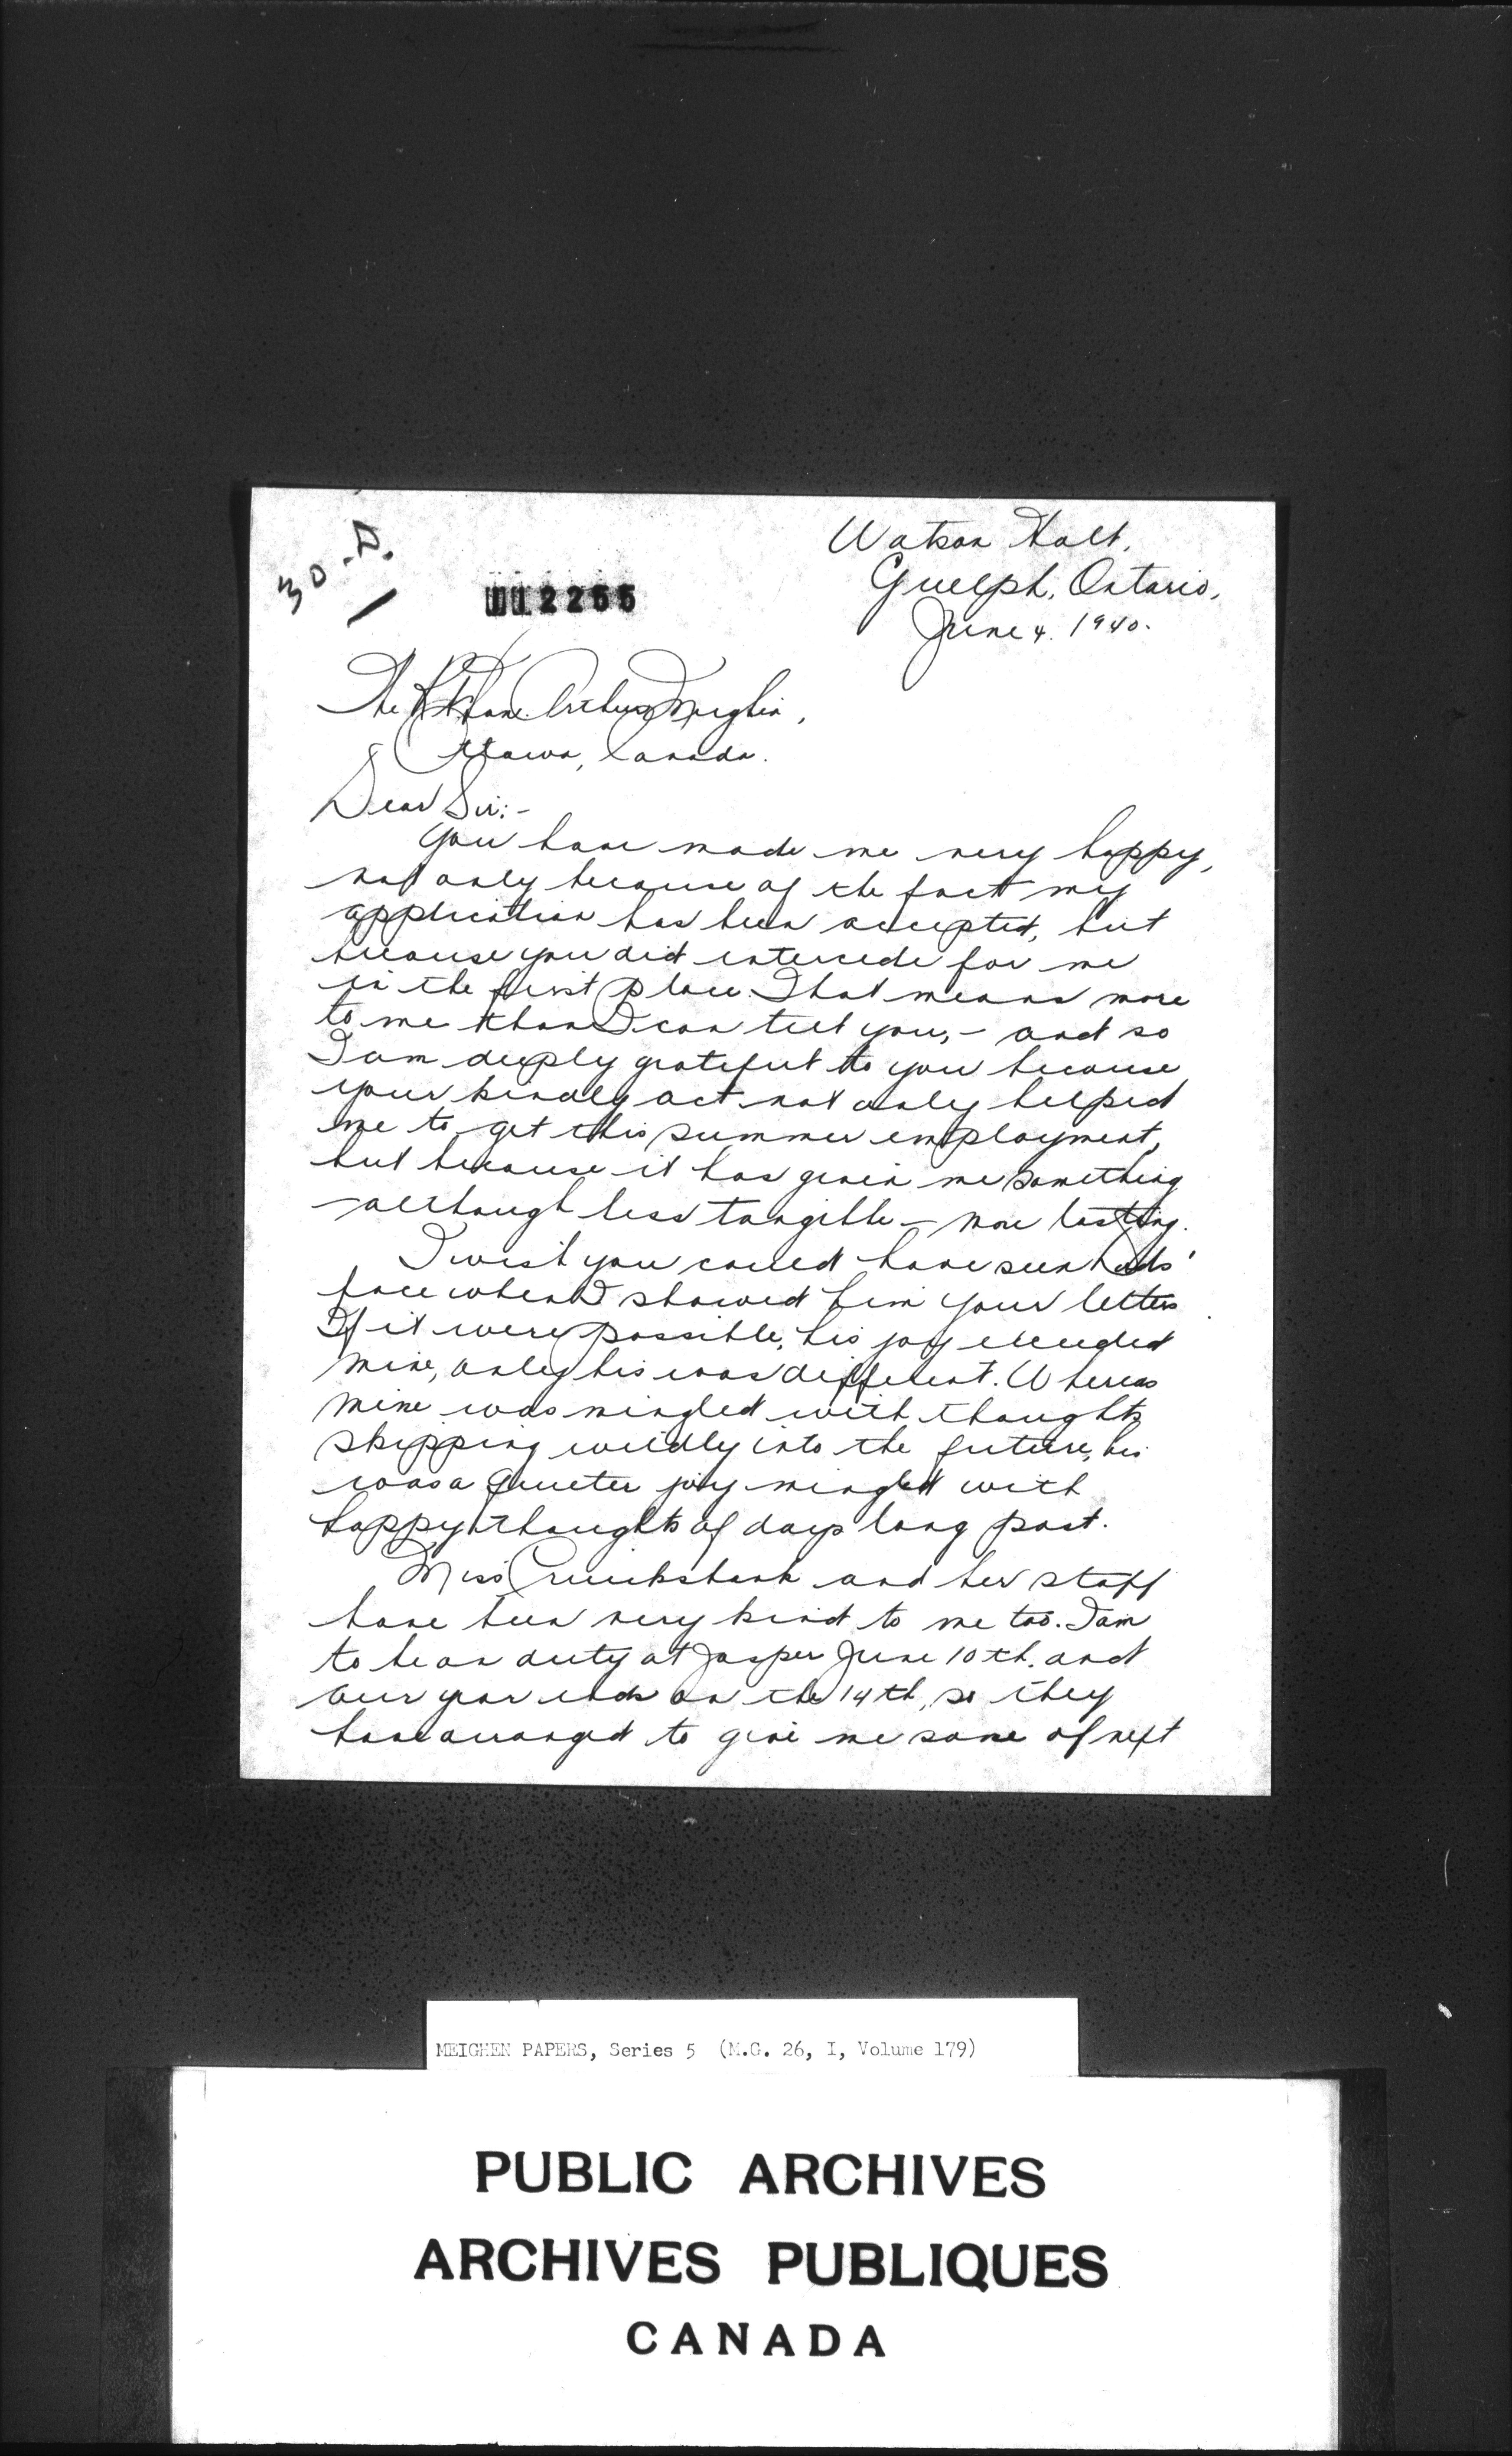 30-D.
112255
Watson Hall,
Guelph, Ontario,
June 4. 1940.
The Rt. Hon. Arthur Meighen,
Ottawa, Canada.
Dear Sir:-
You have made me very happy,
not only because of the fact my
application has been accepted, but
because you did intercede for me
in the first place. That means more
to me than I can tell you,- and so
I am deeply grateful to you because
your kindly act not only helped
me to get this summer employment,
but because it has given me something
-although less tangible - more lasting.
I wish you could have seen Dads'
face when I showed him your letter.
If it were possible, his joy exceeded
mine, only his was different. Whereas
mine was mingled with thoughts
skipping wildly into the future, his
was a quieter joy mingled with
happy thoughts of days long past.
Miss Cruickshank and her staff
have been very kind to me too. I am
to be on duty at Jasper June 10th. and
our year ends on the 14th, so they
have arranged to give me some of next
MEIGHEN PAPERS, Series 5 (M.G. 26, I, Volume 179)
PUBLIC ARCHIVES
ARCHIVES PUBLIQUES
CANADA